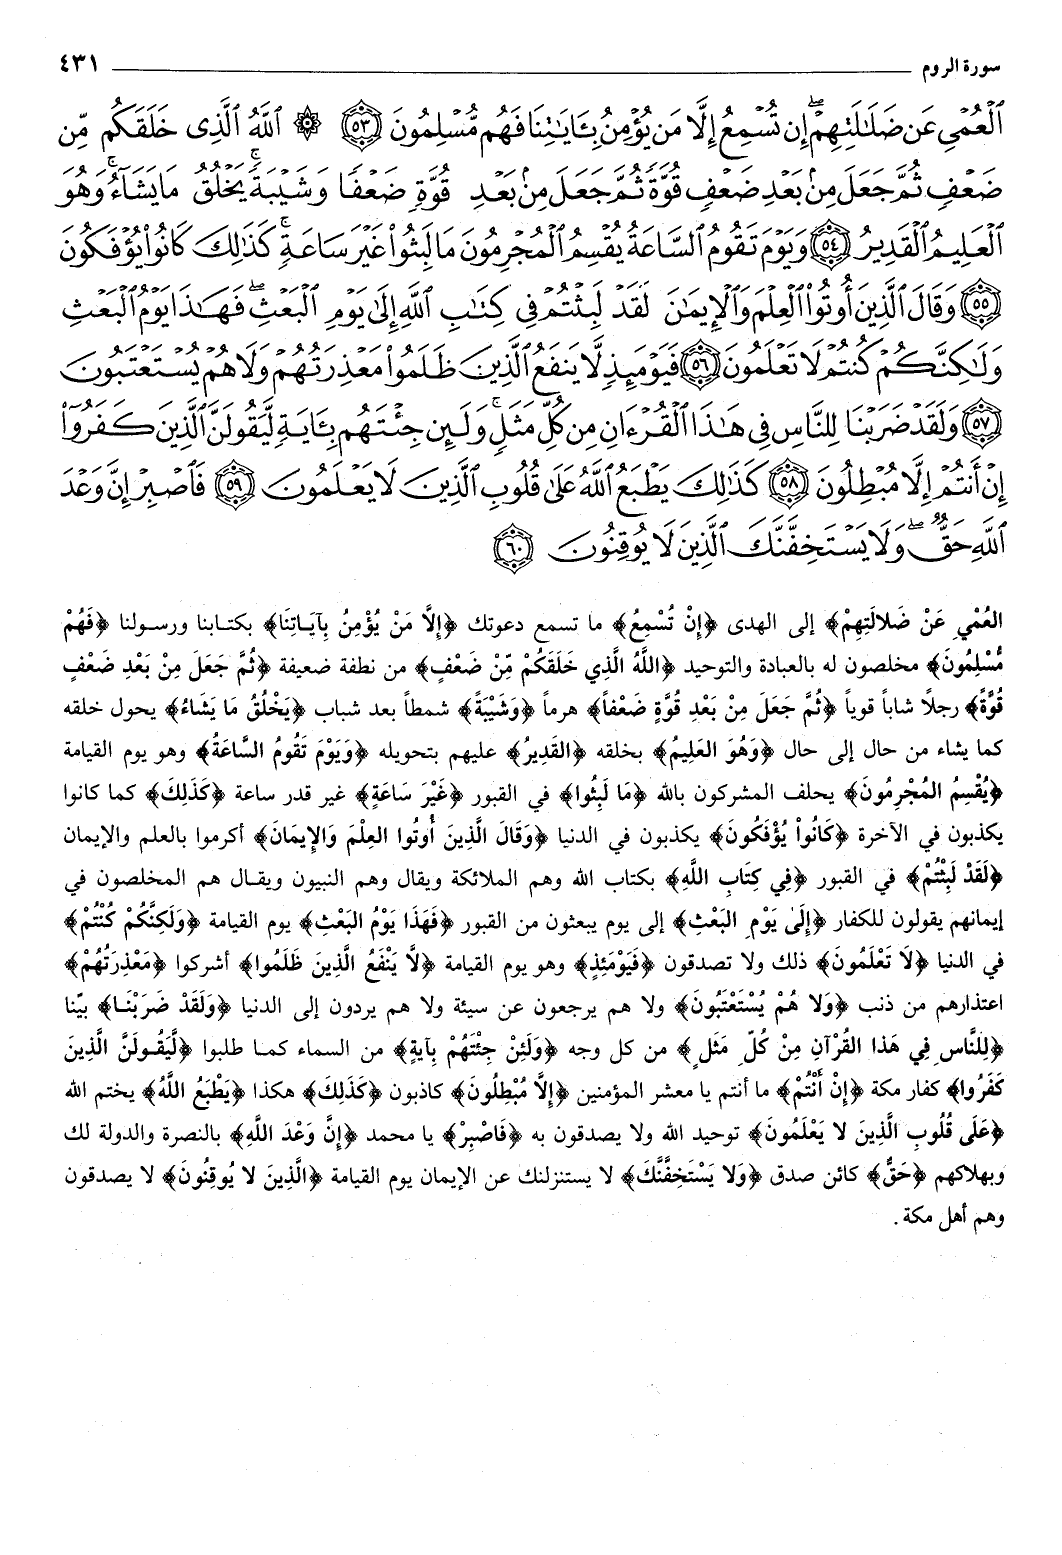 سورة الروم ٤٣١
ٱلْعُمْىِ عَن ضَلَـٰلَتِهِمْ ۖ إِن تُسْمِعُ إِلَّا مَن يُؤْمِنُ بِـَٔايَـٰتِنَا فَهُم مُّسْلِمُونَ ٥٣ ۞ ٱللَّهُ ٱلَّذِى خَلَقَكُم مِّن
ضَعْفٍ ثُمَّ جَعَلَ مِنۢ بَعْدِ ضَعْفٍ قُوَّةً ثُمَّ جَعَلَ مِنۢ بَعْدِ قُوَّةٍ ضَعْفًا وَشَيْبَةً ۚ يَخْلُقُ مَا يَشَآءُ ۚ وَهُوَ
ٱلْعَلِيمُ ٱلْقَدِيرُ ٥٤ وَيَوْمَ تَقُومُ ٱلسَّاعَةُ يُقْسِمُ ٱلْمُجْرِمُونَ مَا لَبِثُوا۟ غَيْرَ سَاعَةٍ ۚ كَذَٰلِكَ كَانُوا۟ يُؤْفَكُونَ
٥٥ وَقَالَ ٱلَّذِينَ أُوتُوا۟ ٱلْعِلْمَ وَٱلْإِيمَـٰنَ لَقَدْ لَبِثْتُمْ فِى كِتَـٰبِ ٱللَّهِ إِلَىٰ يَوْمِ ٱلْبَعْثِ ۖ فَهَـٰذَا يَوْمُ ٱلْبَعْثِ
وَلَـٰكِنَّكُمْ كُنتُمْ لَا تَعْلَمُونَ ٥٦ فَيَوْمَئِذٍ لَّا يَنفَعُ ٱلَّذِينَ ظَلَمُوا۟ مَعْذِرَتُهُمْ وَلَا هُمْ يُسْتَعْتَبُونَ
٥٧ وَلَقَدْ ضَرَبْنَا لِلنَّاسِ فِى هَـٰذَا ٱلْقُرْءَانِ مِن كُلِّ مَثَلٍ ۚ وَلَئِن جِئْتَهُم بِـَٔايَةٍ لَّيَقُولَنَّ ٱلَّذِينَ كَفَرُوٓا۟
إِنْ أَنتُمْ إِلَّا مُبْطِلُونَ ٥٨ كَذَٰلِكَ يَطْبَعُ ٱللَّهُ عَلَىٰ قُلُوبِ ٱلَّذِينَ لَا يَعْلَمُونَ ٥٩ فَٱصْبِرْ إِنَّ وَعْدَ
ٱللَّهِ حَقٌّ ۖ وَلَا يَسْتَخِفَّنَّكَ ٱلَّذِينَ لَا يُوقِنُونَ ٦٠
العُمْيِ عَنْ ضَلالَتِهِمْ﴾ إلى الهدى ﴿إِنْ تُسْمِعُ﴾ ما تسمع دعوتك ﴿إِلَّا مَنْ يُؤْمِنُ بِآيَاتِنَا﴾ بكتابنا ورسولنا ﴿فَهُمْ
مُّسْلِمُونَ﴾ مخلصون له بالعبادة والتوحيد ﴿اللَّهُ الَّذِي خَلَقَكُمْ مِّنْ ضَعْفٍ﴾ من نطفة ضعيفة ﴿ثُمَّ جَعَلَ مِنْ بَعْدِ ضَعْفٍ
قُوَّةً﴾ رجلاً شاباً قوياً ﴿ثُمَّ جَعَلَ مِنْ بَعْدِ قُوَّةٍ ضَعْفاً﴾ هرماً ﴿وَشَيْبَةً﴾ شمطاً بعد شباب ﴿يَخْلُقُ مَا يَشَاءُ﴾ يحول خلقه
كما يشاء من حال إلى حال ﴿وَهُوَ العَلِيمُ﴾ بخلقه ﴿القَدِيرُ﴾ عليهم بتحويله ﴿وَيَوْمَ تَقُومُ السَّاعَةُ﴾ وهو يوم القيامة
﴿يُقْسِمُ المُجْرِمُونَ﴾ يحلف المشركون بالله ﴿مَا لَبِثُوا﴾ في القبور ﴿غَيْرَ سَاعَةٍ﴾ غير قدر ساعة ﴿كَذَلِكَ﴾ كما كانوا
يكذبون في الآخرة ﴿كَانُواْ يُؤْفَكُونَ﴾ يكذبون في الدنيا ﴿وَقَالَ الَّذِينَ أُوتُوا العِلْمَ وَالإِيمَانَ﴾ أكرموا بالعلم والإيمان
﴿لَقَدْ لَبِثْتُمْ﴾ في القبور ﴿فِي كِتَابِ اللَّهِ﴾ بكتاب الله وهم الملائكة ويقال وهم النبيون ويقال هم المخلصون في
إيمانهم يقولون للكفار ﴿إِلَىٰ يَوْمِ البَعْثِ﴾ إلى يوم يبعثون من القبور ﴿فَهَذَا يَوْمُ البَعْثِ﴾ يوم القيامة ﴿وَلَكِنَّكُمْ كُنْتُمْ﴾
في الدنيا ﴿لَا تَعْلَمُونَ﴾ ذلك ولا تصدقون ﴿فَيَوْمَئِذٍ﴾ وهو يوم القيامة ﴿لَّا يَنْفَعُ الَّذِينَ ظَلَمُوا﴾ أشركوا ﴿مَعْذِرَتُهُمْ﴾
اعتذارهم من ذنب ﴿وَلا هُمْ يُسْتَعْتَبُونَ﴾ ولا هم يرجعون عن سيئة ولا هم يردون إلى الدنيا ﴿وَلَقَدْ ضَرَبْنَا﴾ بيّنا
﴿لِلنَّاسِ فِي هَذَا القُرْآنِ مِنْ كُلِّ مَثَلٍ﴾ من كل وجه ﴿وَلَئِنْ جِئْتَهُمْ بِآيةٍ﴾ من السماء كما طلبوا ﴿لَّيَقُولَنَّ الَّذِينَ
كَفَرُوا﴾ كفار مكة ﴿إِنْ أَنْتُمْ﴾ ما أنتم يا معشر المؤمنين ﴿إِلَّا مُبْطِلُونَ﴾ كاذبون ﴿كَذَلِكَ﴾ هكذا ﴿يَطْبَعُ اللَّهُ﴾ يختم الله
﴿عَلَى قُلُوبِ الَّذِينَ لا يَعْلَمُونَ﴾ توحيد الله ولا يصدقون به ﴿فَاصْبِرْ﴾ يا محمد ﴿إِنَّ وَعْدَ اللَّهِ﴾ بالنصرة والدولة لك
وبهلاكهم ﴿حَقٌّ﴾ كائن صدق ﴿وَلا يَسْتَخِفَّنَّكَ﴾ لا يستنزلنك عن الإيمان يوم القيامة ﴿الَّذِينَ لا يُوقِنُونَ﴾ لا يصدقون
وهم أهل مكة.